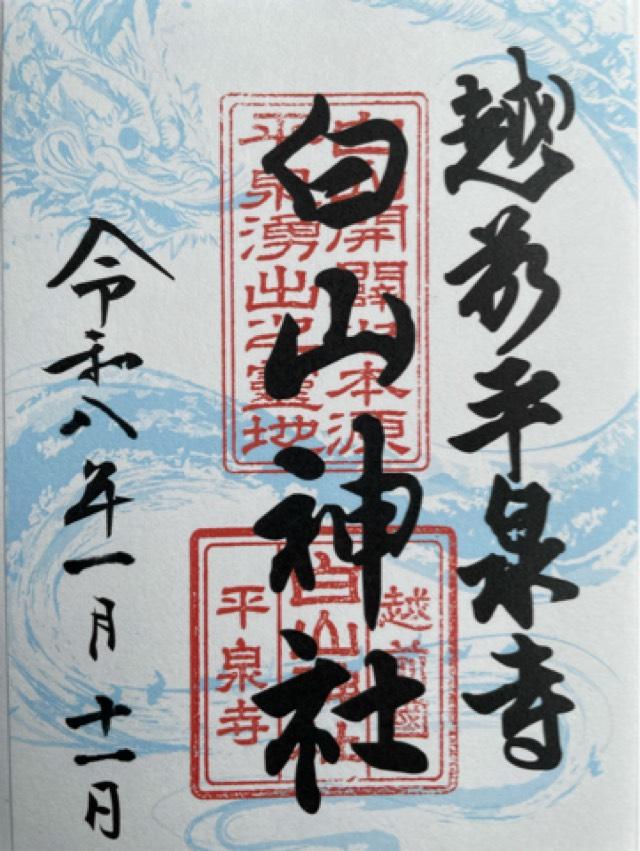 越前平泉寺
白山神社
令和八年一月十一日
開闢 本源
平泉湧出之靈地
越前
白山神社
平泉寺